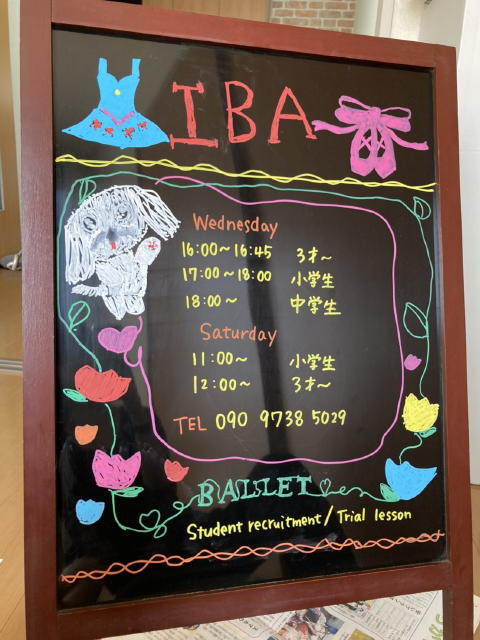 IBA
Wednesday
16:00～16:45 3才～
17:00～18:00 小学生
18:00～ 中学生
Saturday
11:00～ 小学生
12:00～ 3才～
TEL 090 9738 5029
BALLET
Student recruitment / Trial lesson